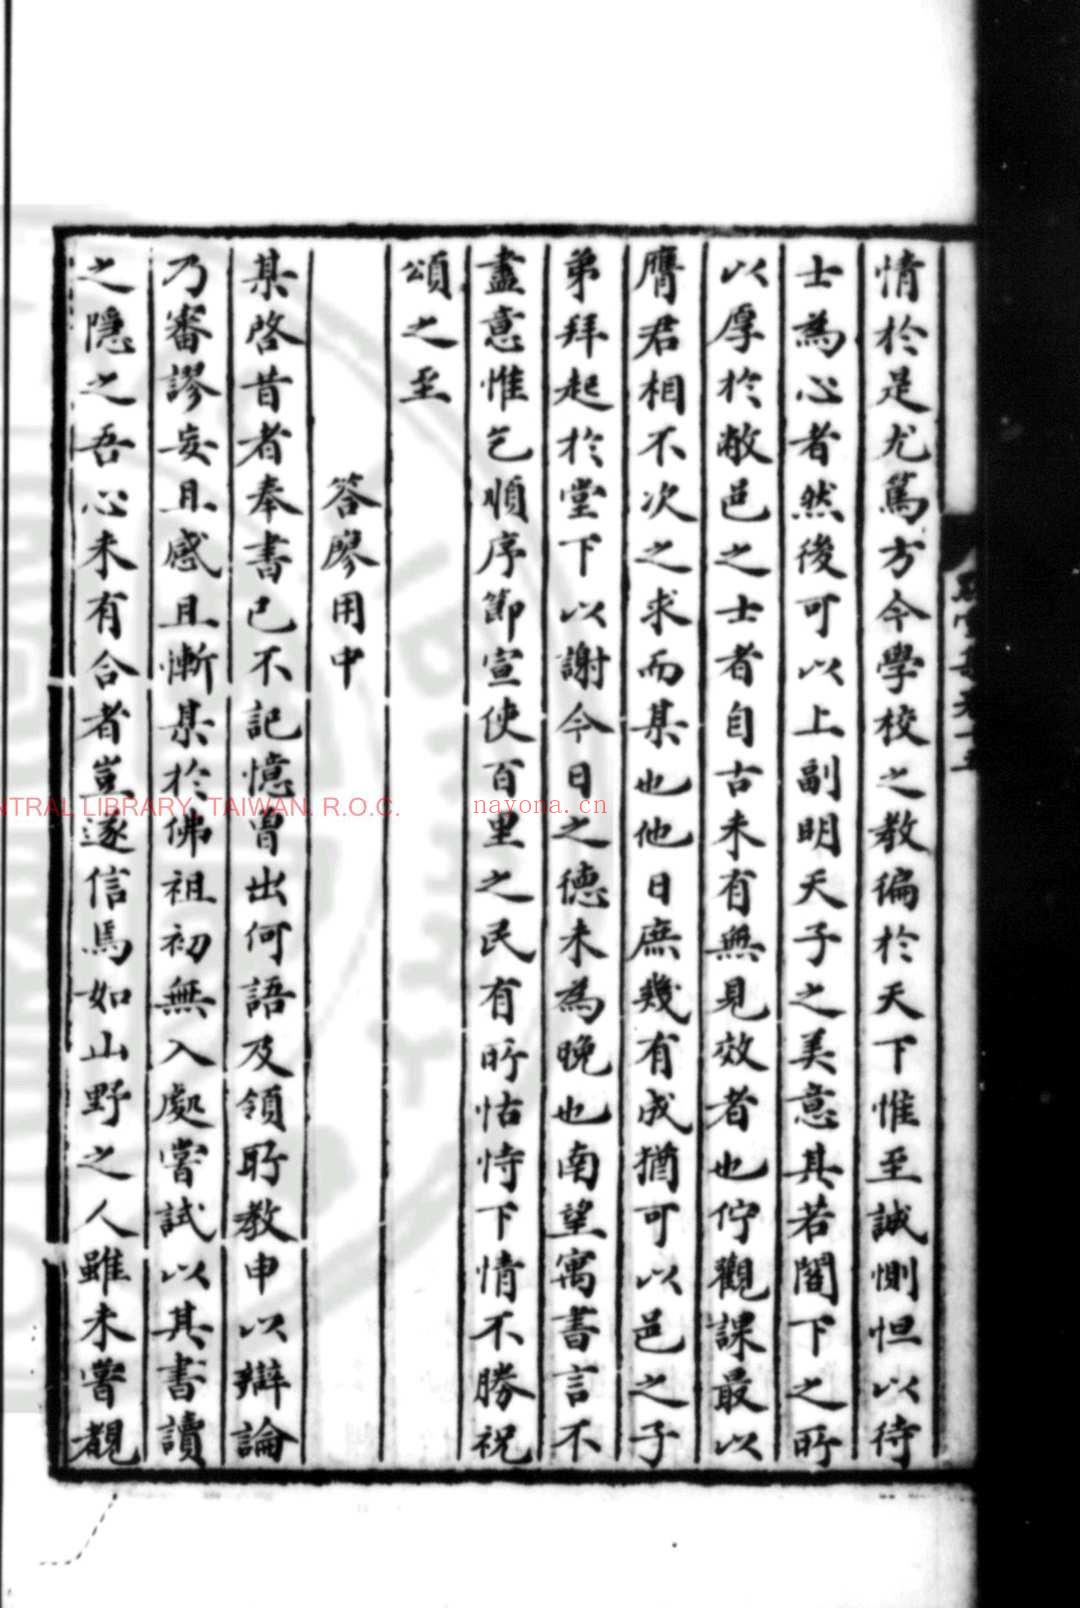 情於是尤篤方今學校之教徧於天下惟至誠惻怛以待
士為心者然後可以上副明天子之美意其若閤下之所
以厚於敝邑之士者自古未有無見效者也佇觀課最以
膺君相不次之求而某也他日庶幾有成猶可以邑之子
弟拜起於堂下以謝今日之德未為晚也南望寓書言不
盡意惟乞順序節宣使百里之民有所怙恃下情不勝祝
頌之至
答廖用中
某啓昔者奉書已不記憶曾出何語及領所教申以辯論
乃審謬妄且感且慚某於佛祖初無入處嘗試以其書讀
之隱之吾心未有合者豈遂信焉如山野之人雖未嘗覩
CENTRAL LIBRARY, TAIWAN. R.O.C.
nayona.cn